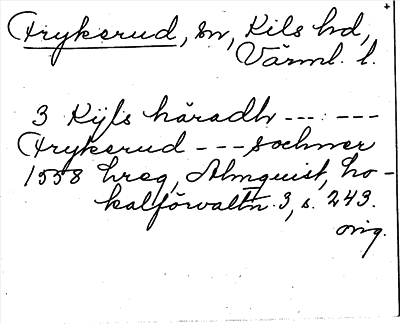 Frykerud, sn, Kils hd,
Värml. l.
3 Kijls häradh --- ---
Frykerud --- sochner
1558 hreg, Almquist, Lo-
kalförvaltn. 3, s. 243.
orig.